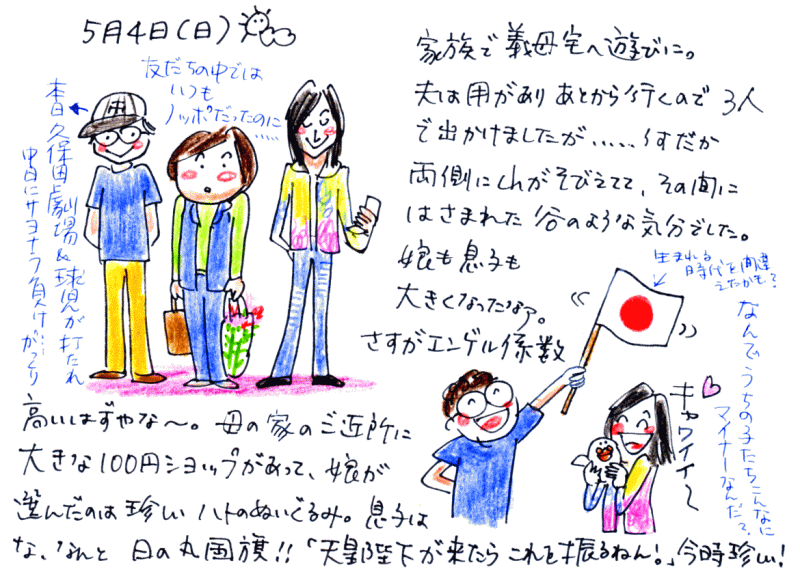 5月4日(日)
家族で義母宅へ遊びに。
夫は用がありあとから行くので3人
で出かけましたが、‥‥‥うすだか
両側に山がそびえてて、その間に
はさまれた谷のような気分でした。
娘も息子も
大きくなったなァ。
さすがエンゲル係数
高いはずやな〜。母の家のご近所に
大きな100円ショップがあって、娘が
選んだのは珍しいハトのぬいぐるみ。息子は
な、なんと日の丸国旗!!「天皇陛下が来たらこれを振るねん!」今時珍しい!
友だちの中では
いつも
ノッポだったのに
‥‥‥
本日久保田劇場&球児が打たれ
中日にサヨナラ負け‥‥がっくり
生まれる
時代を間違
えたかも?
なんでうちの子たちこんなに
マイナーなんだ?
キャワイイ〜